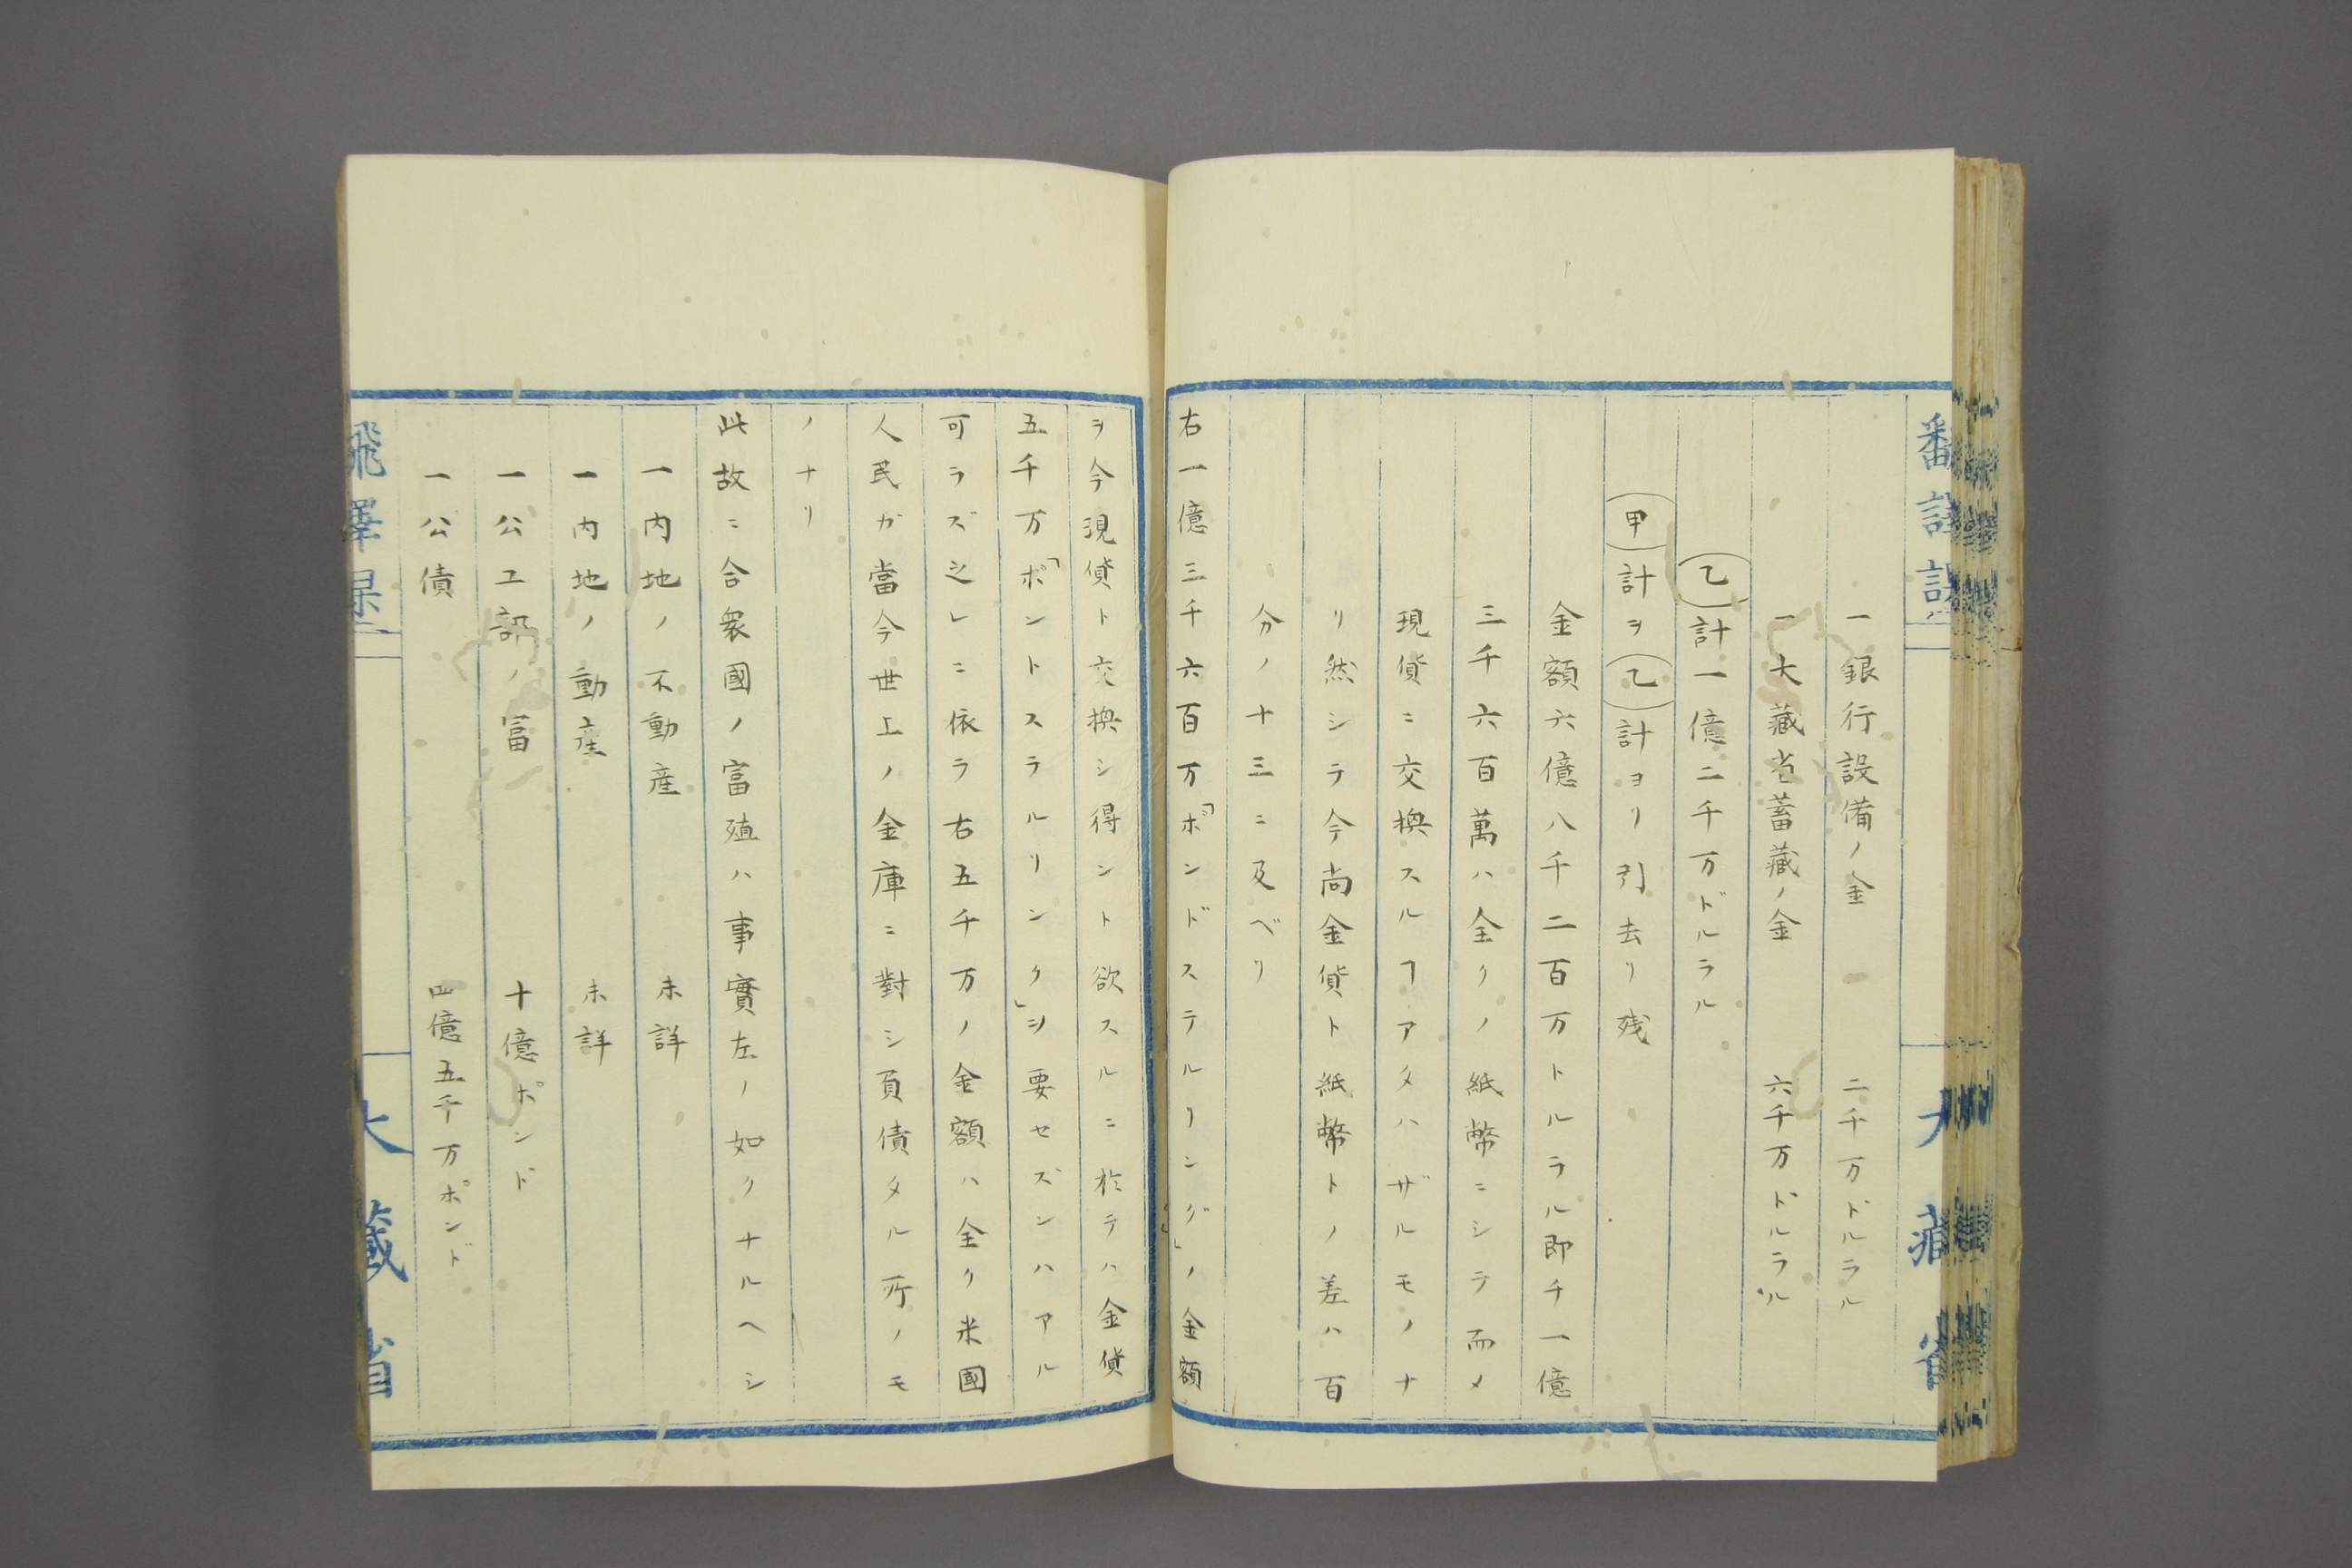 一銀行設備ノ金　二千万ドルラル
一大藏省蓄藏ノ金　六千万ドルラル
乙計一億二千万ドルラル
甲計ヲ乙計ヨリ引去リ残
金額六億八千二百万トルラル即チ一億
三千六百萬ハ全クノ紙幣ニシテ而メ
現貨ニ交換スルヿアタハザルモノナ
リ然シテ今尚金貨ト紙幣トノ差ハ百
分ノ十三ニ及ベリ
右一億三千六百万「ポンドステルリング」ノ金額
ヲ今現貨ト交換シ得ント欲スルニ於テハ金貨
五千万「ポントステルリンク」ヲ要セズンハアル
可ラズ之レニ依テ右五千万ノ金額ハ全ク米國
人民ガ當今世上ノ金庫ニ對シ頁債タル所ノモ
ノナリ
此故ニ合衆國ノ富殖ハ事實左ノ如クナルヘシ
一内地ノ不動産　未詳
一内地ノ動産　未詳
一公工部ノ冨　十億ポンド
一公債　四億五千万ポンド
大藏省
大藏省